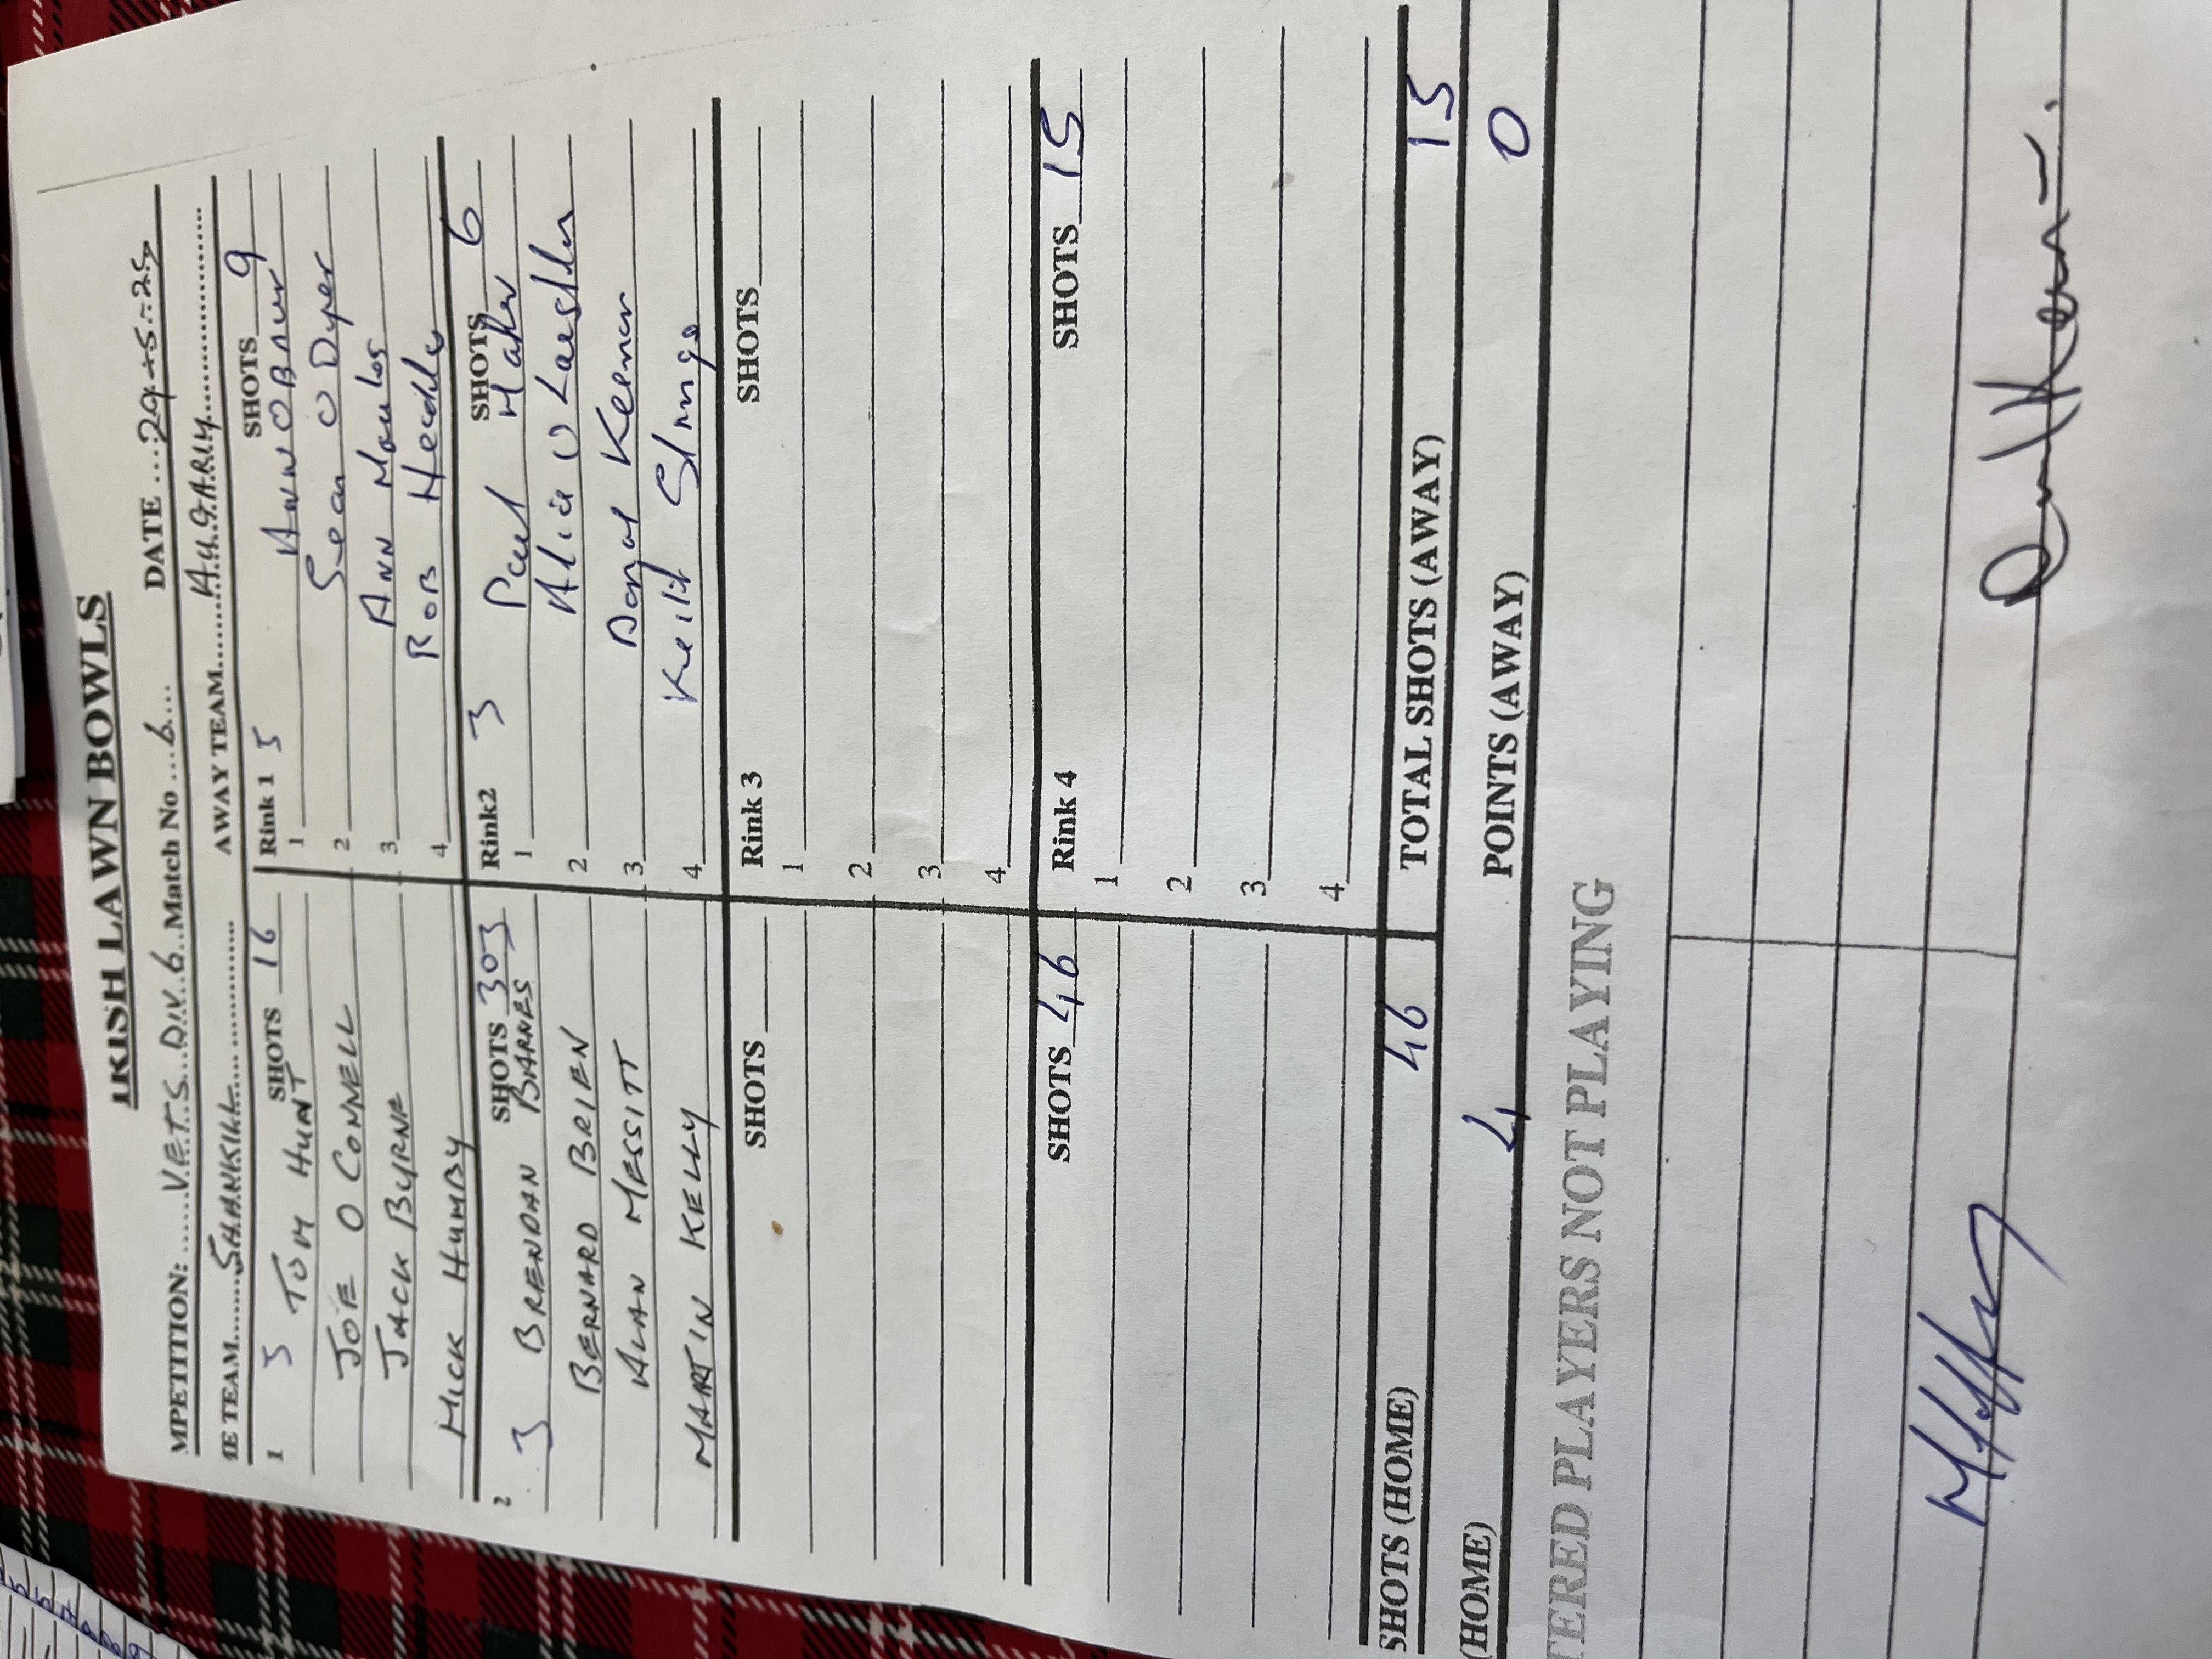 IRISH LAWN BOWLS
MPETITION: ......V.E.T.S..DIV.6..Match No ...6.... DATE ...29-5-25
IE TEAM.........SHANKILL............... AWAY TEAM.........AUGARLY...................
1 3 SHOTS 16 Rink 1 5 SHOTS 9
TOM HUNT 1
JOE O CONNELL 2 Sean O Dyer
JACK BYRNE 3 ANN
MICK HUMBY 4 ROB
2 3 SHOTS 30 Rink2 3 SHOTS 6
BRENDAN BARNES 1 Paul
BERNARD BRIEN 2
ALAN MESSITT 3 Donal Keenan
MARTIN KELLY 4 Keith
SHOTS Rink 3 SHOTS
1
2
3
4
SHOTS 46 Rink 4 SHOTS 15
1
2
3
4
SHOTS (HOME) 46 TOTAL SHOTS (AWAY) 15
(HOME) 4 POINTS (AWAY) 0
TERED PLAYERS NOT PLAYING